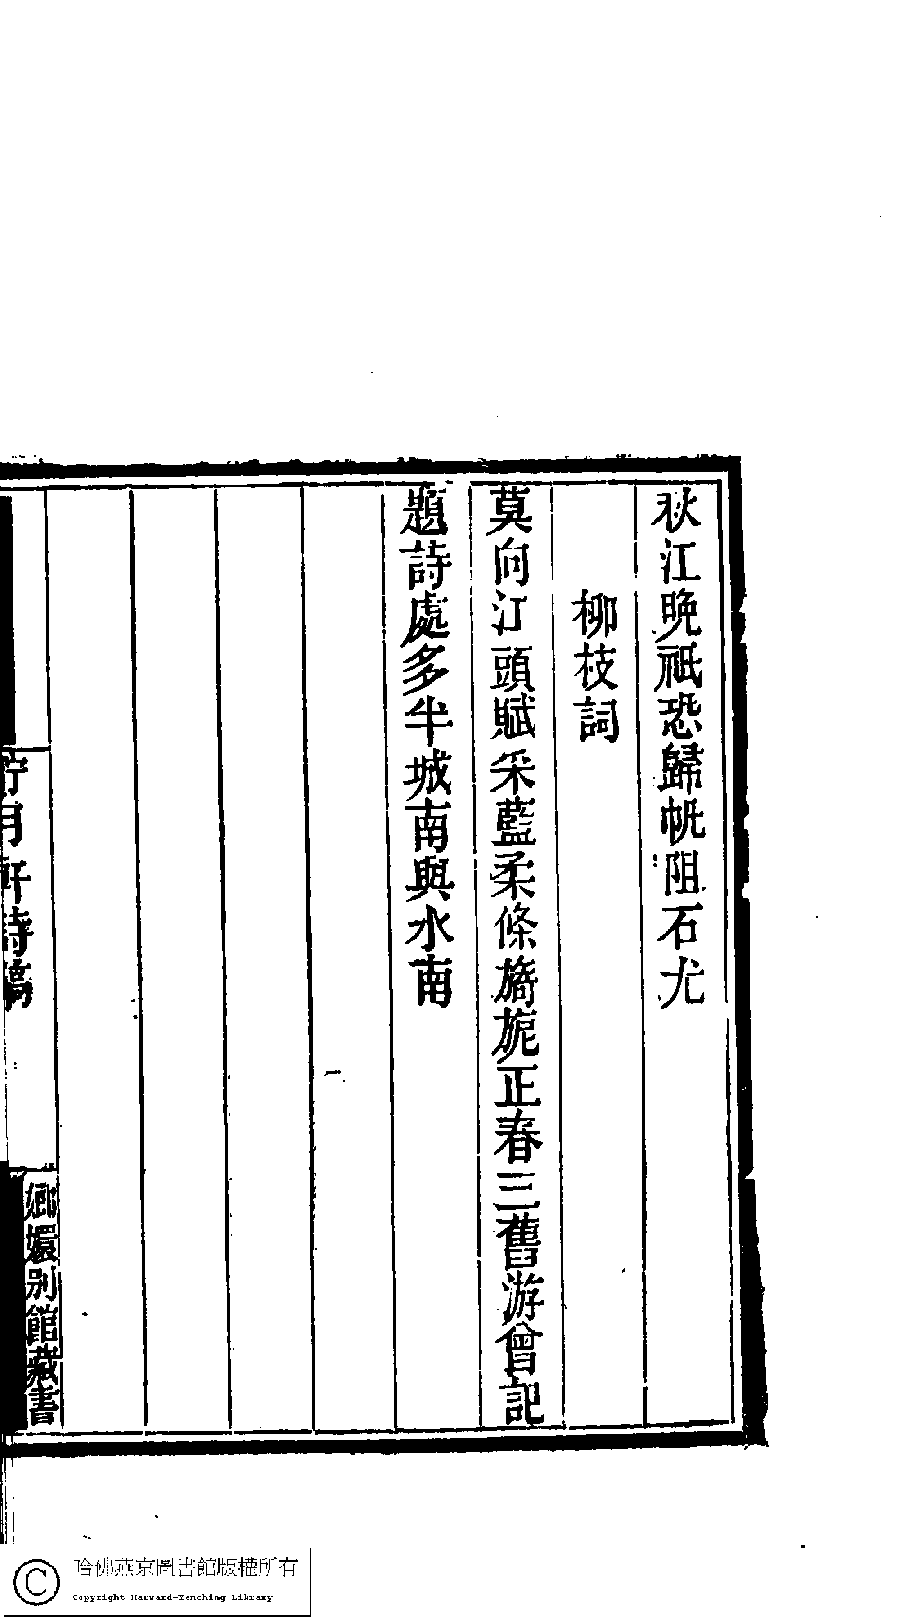 秋江晚祇恐歸帆阻石尤
柳枝詞
莫向江頭賦采藍柔條旖旎正春三舊游曾記
題詩處多半城南與水南
佇月軒詩稿
嫏嬛別館藏書
哈佛燕京圖書館版權所有
Copyright Harvard-Yenching Library